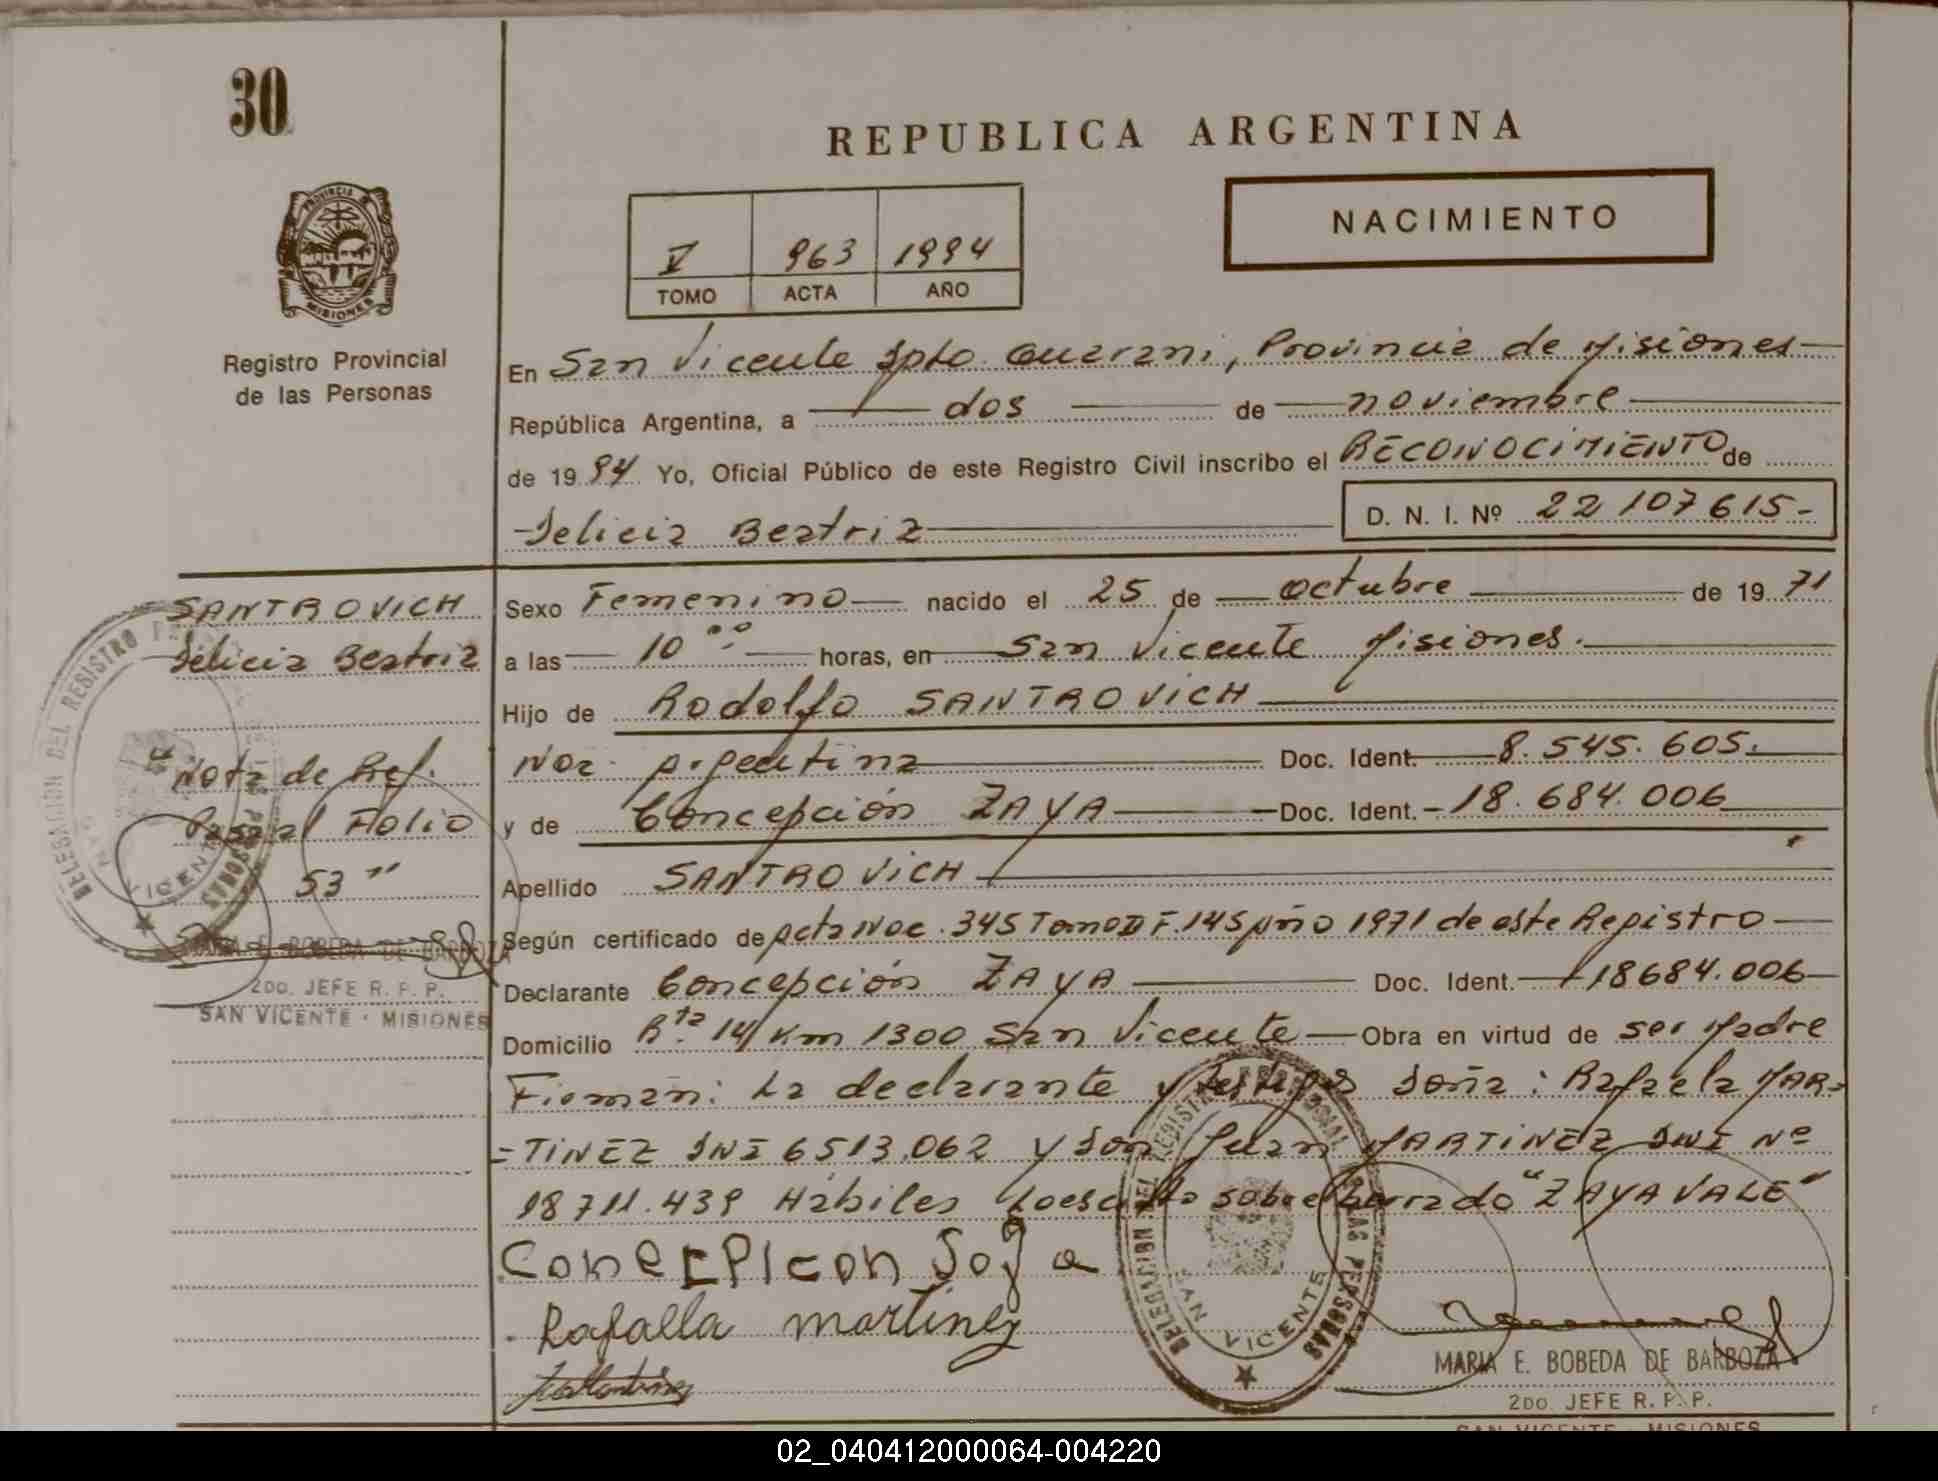 30
REPUBLICA ARGENTINA
NACIMIENTO
V 963 1994
TOMO ACTA AÑO
PROVINCIA DE MISIONES
Registro Provincial
de las Personas
En San Vicente Dpto. Guarani, Provincia de Misiones
República Argentina, a dos de noviembre
de 1994 Yo, Oficial Público de este Registro Civil inscribo el RECONOCIMIENTO de
Delicia Beatriz
D. N. I. Nº 22 107615-
SANTROVICH
Delicia Beatriz
Nota de Ref.
Pasa al Folio
53"
MARIA E. BOBEDA DE BARBOZA
2DO. JEFE R. P. P.
SAN VICENTE - MISIONES
Sexo Femenino nacido el 25 de octubre de 1971
a las 10 °° horas, en San Vicente Misiones.
Hijo de Rodolfo SANTROVICH
Nac. Argentina Doc. Ident. 8.545.605.
y de Concepción ZAYA Doc. Ident. 18.684.006
Apellido SANTROVICH
Según certificado de Acta Nac. 345 Tomo II F. 145 Año 1971 de este Registro
Declarante Concepción ZAYA Doc. Ident. 18684.006
Domicilio Rta. 14 Km 1300 San Vicente Obra en virtud de ser Madre
Firman: La declarante y testigos Doña: Rafaela MAR=
=TINEZ DNI 6513.062 y Don Juan MARTINEZ DNI Nº
18711.439 Hábiles Lo escrito sobre borrado "ZAYA VALE"
Rafaella martinez
DELEGACION DEL REGISTRO PROVINCIAL DE LAS PERSONAS
SAN VICENTE
MARIA E. BOBEDA DE BARBOZA
2DO. JEFE R. P. P.
SAN VICENTE - MISIONES
02_040412000064-004220